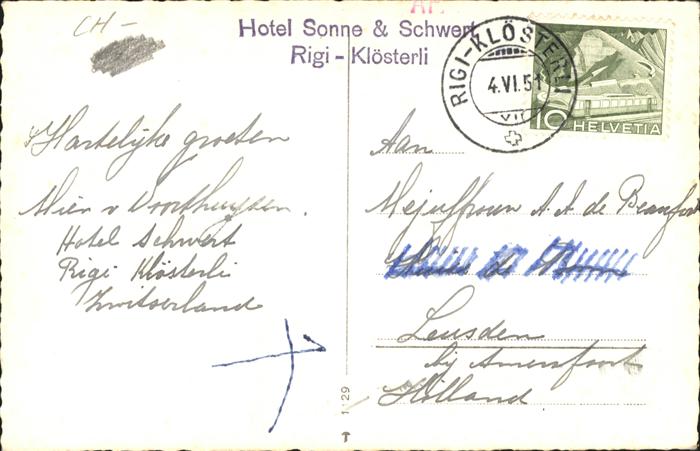 CH-
AF.
Hotel Sonne & Schwert
Rigi - Klösterli
RIGI-KLÖSTERLI
4.VI.51
XII
10 HELVETIA
Hartelijke groeten
Mien v Voorthuysen.
Hotel Schwert
Rigi Klösterli
Zwitserland
Aan
Mejuffrouw A. A. de Beaufort
Huis de
Leusden
bij Amersfoort
Holland
1129